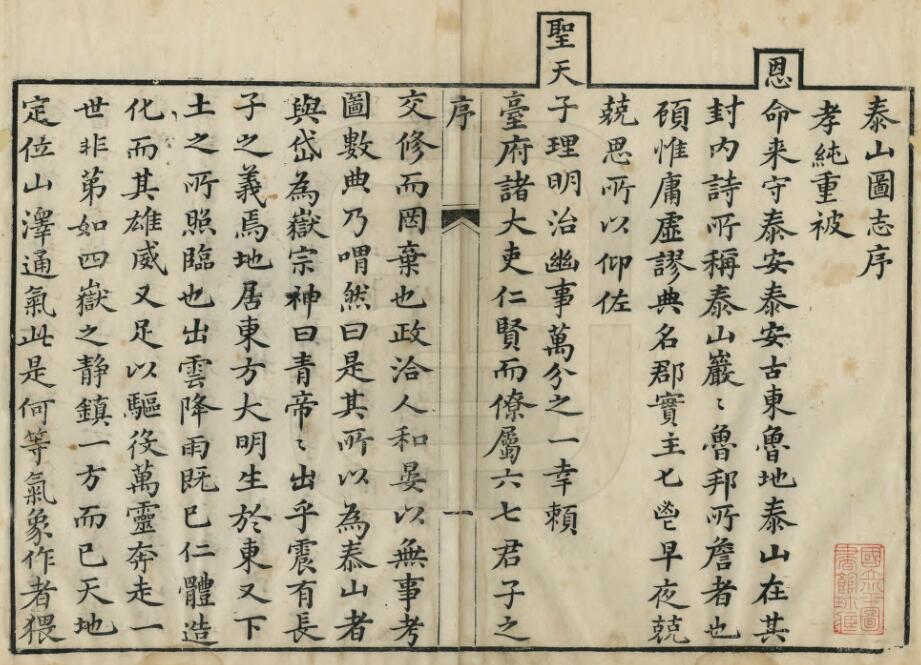 泰山圖志序
孝純重被
恩命来守泰安泰安古東魯地泰山在其
封内詩所稱泰山巖〻魯邦所詹者也
頋惟庸虛謬典名郡實主七鬯早夜兢
兢思所以仰佐
聖天子理明治幽事萬分之一幸賴
臺府諸大吏仁賢而僚屬六七君子之
序
一
交修而罔棄也政洽人和晏以無事考
圖數典乃喟然曰是其所以為泰山者
與岱為嶽宗神曰青帝〻出乎震有長
子之義焉地居東方大明生於東又下
土之所照臨也出雲降雨既已仁體造
化而其雄威又足以驅役萬靈奔走一
世非第如四嶽之静鎮一方而已天地
定位山澤通氣此是何等氣象作者猥